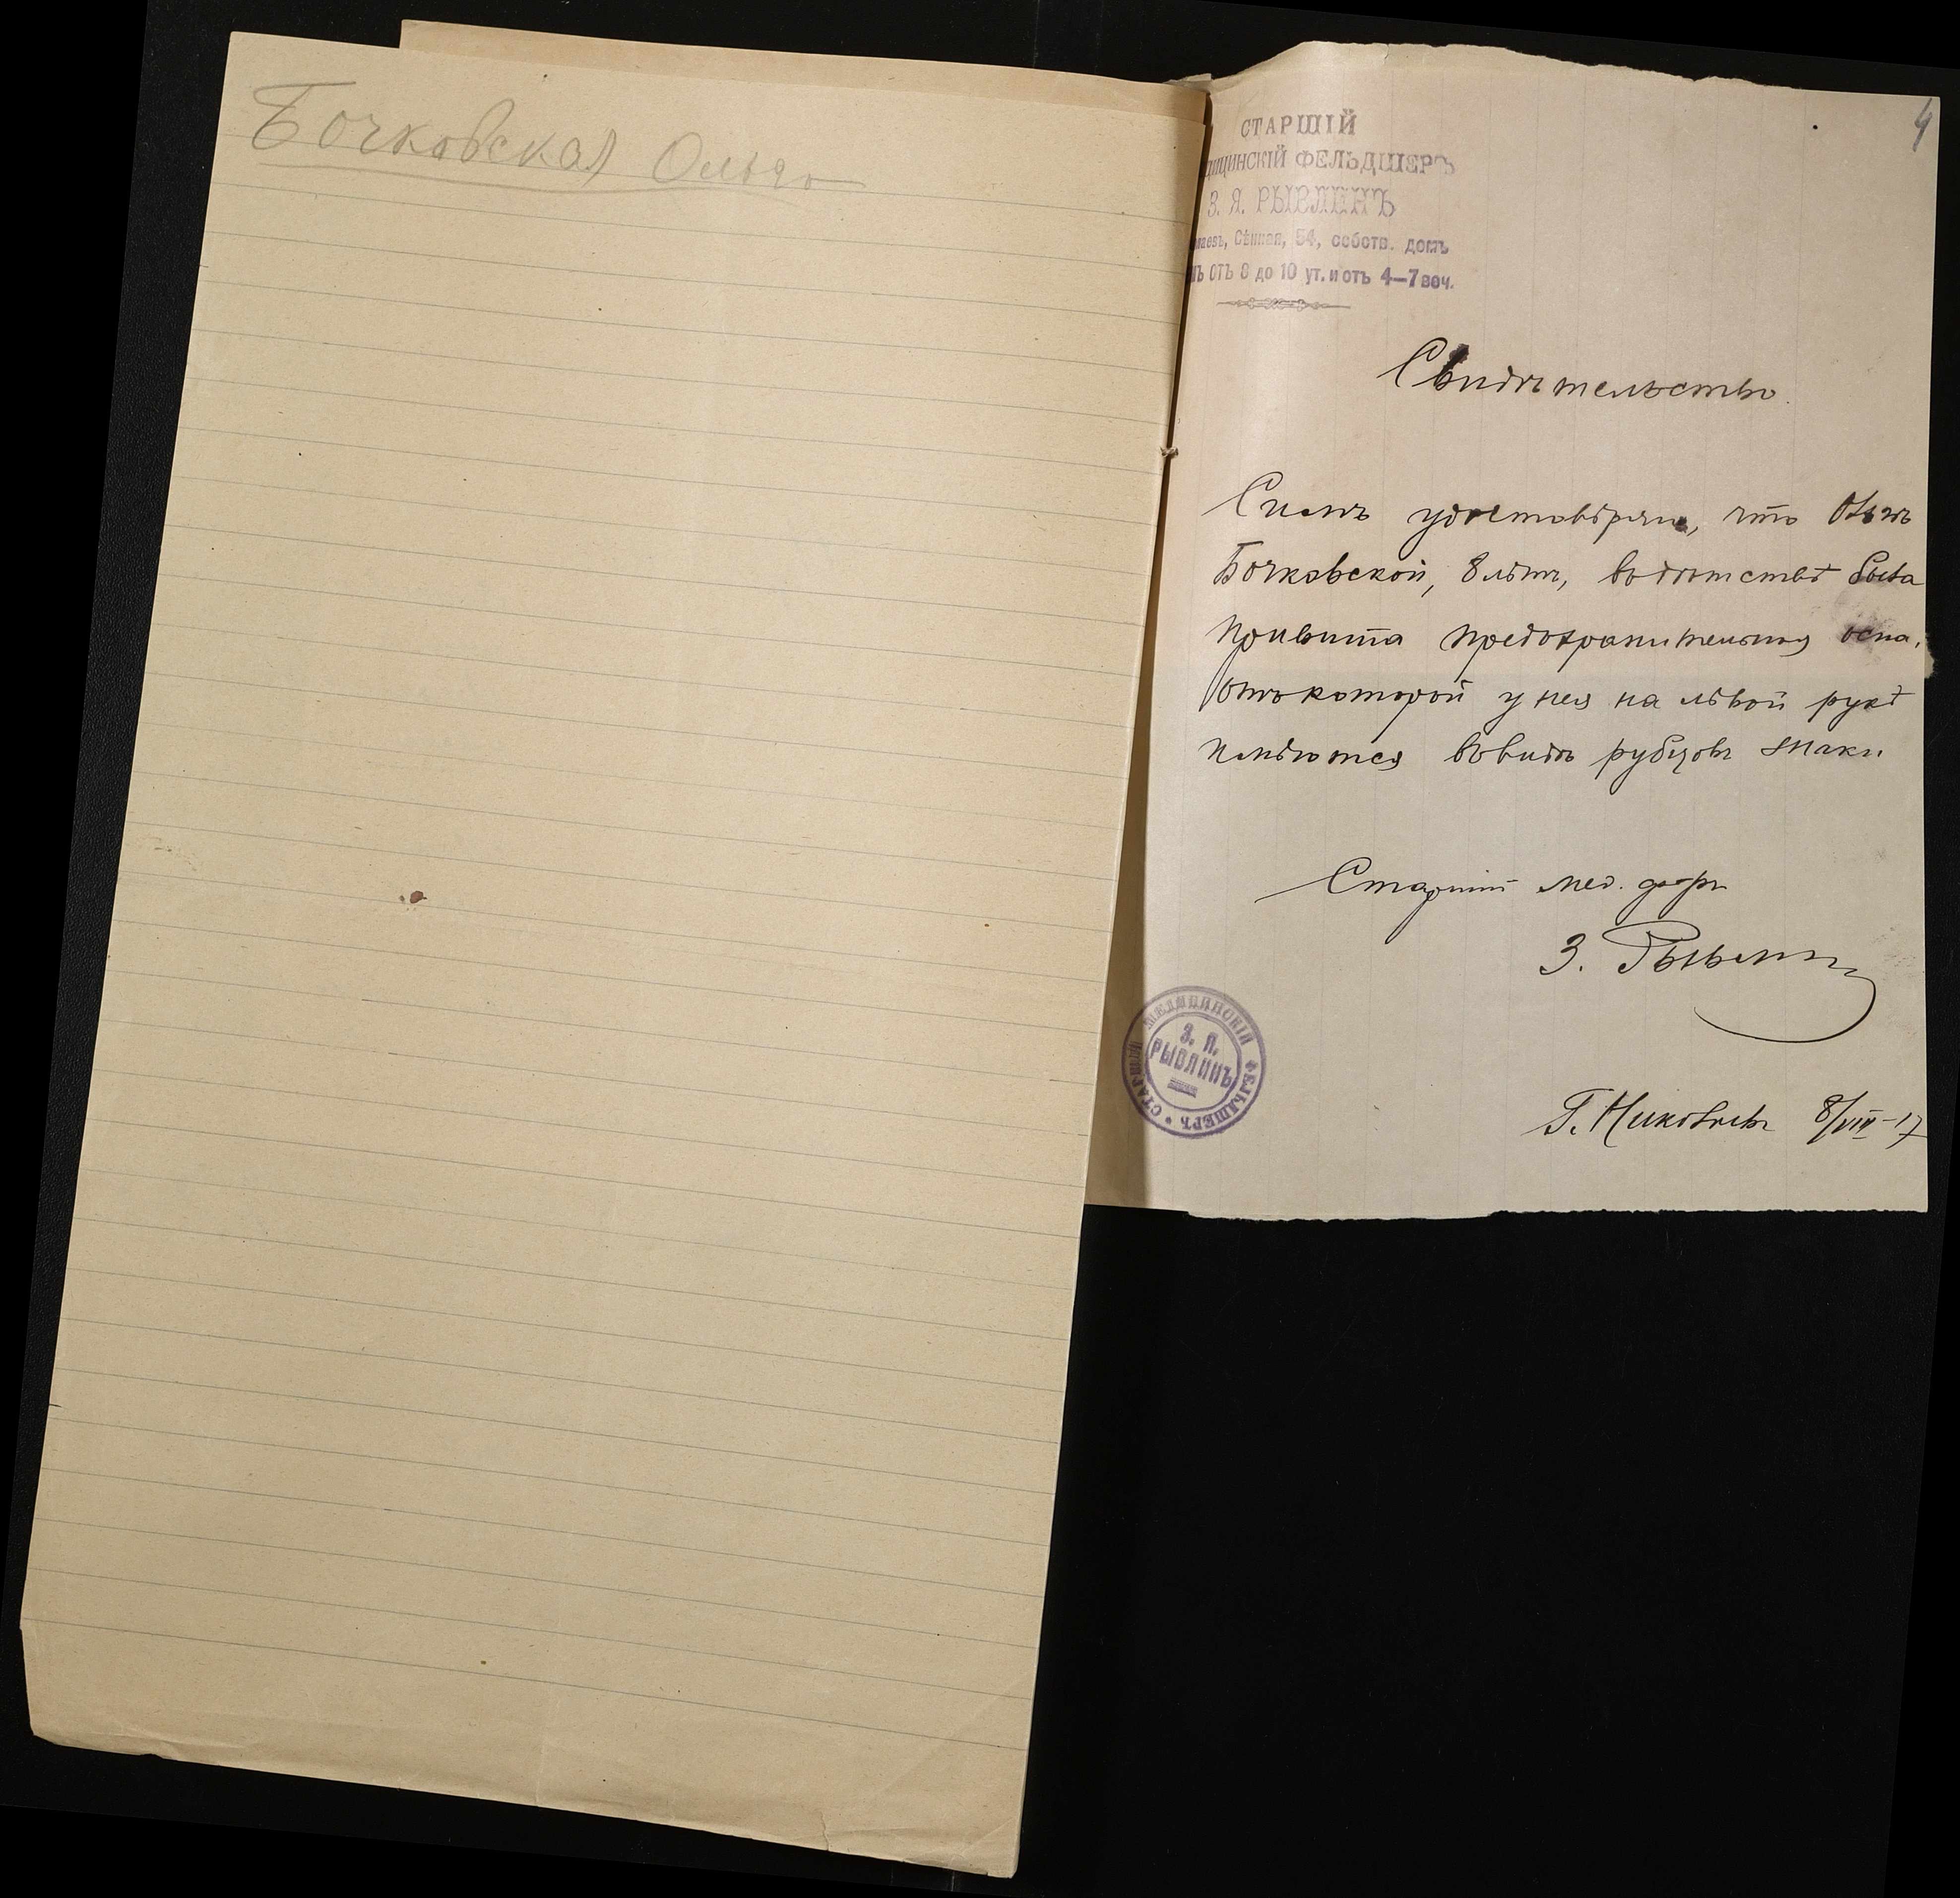 Бочковская Ольга
4
СТАРШІЙ
ДИЦИНСКІЙ ФЕЛЬДШЕРЪ
З. Я. РЫВЛИНЪ
лаевъ, Сѣнная, 54, собств. домъ
ОТЪ 8 до 10 ут. и отъ 4—7 веч.
Свидѣтельство.
Симъ удостовѣряю, что Ользѣ
Бочковской, 8 лѣтъ, въ дѣтствѣ была
привита предохранительная оспа,
отъ которой у нея на лѣвой рукѣ
имѣются въ видѣ рубцовъ знаки
Старшій мед. ф-ръ
З. Рывлинъ
СТАРШІЙ МЕДИЦИНСКІЙ ФЕЛЬДШЕРЪ
З. Я.
РЫВЛИНЪ
Г. Николаевъ 8/VIII-17